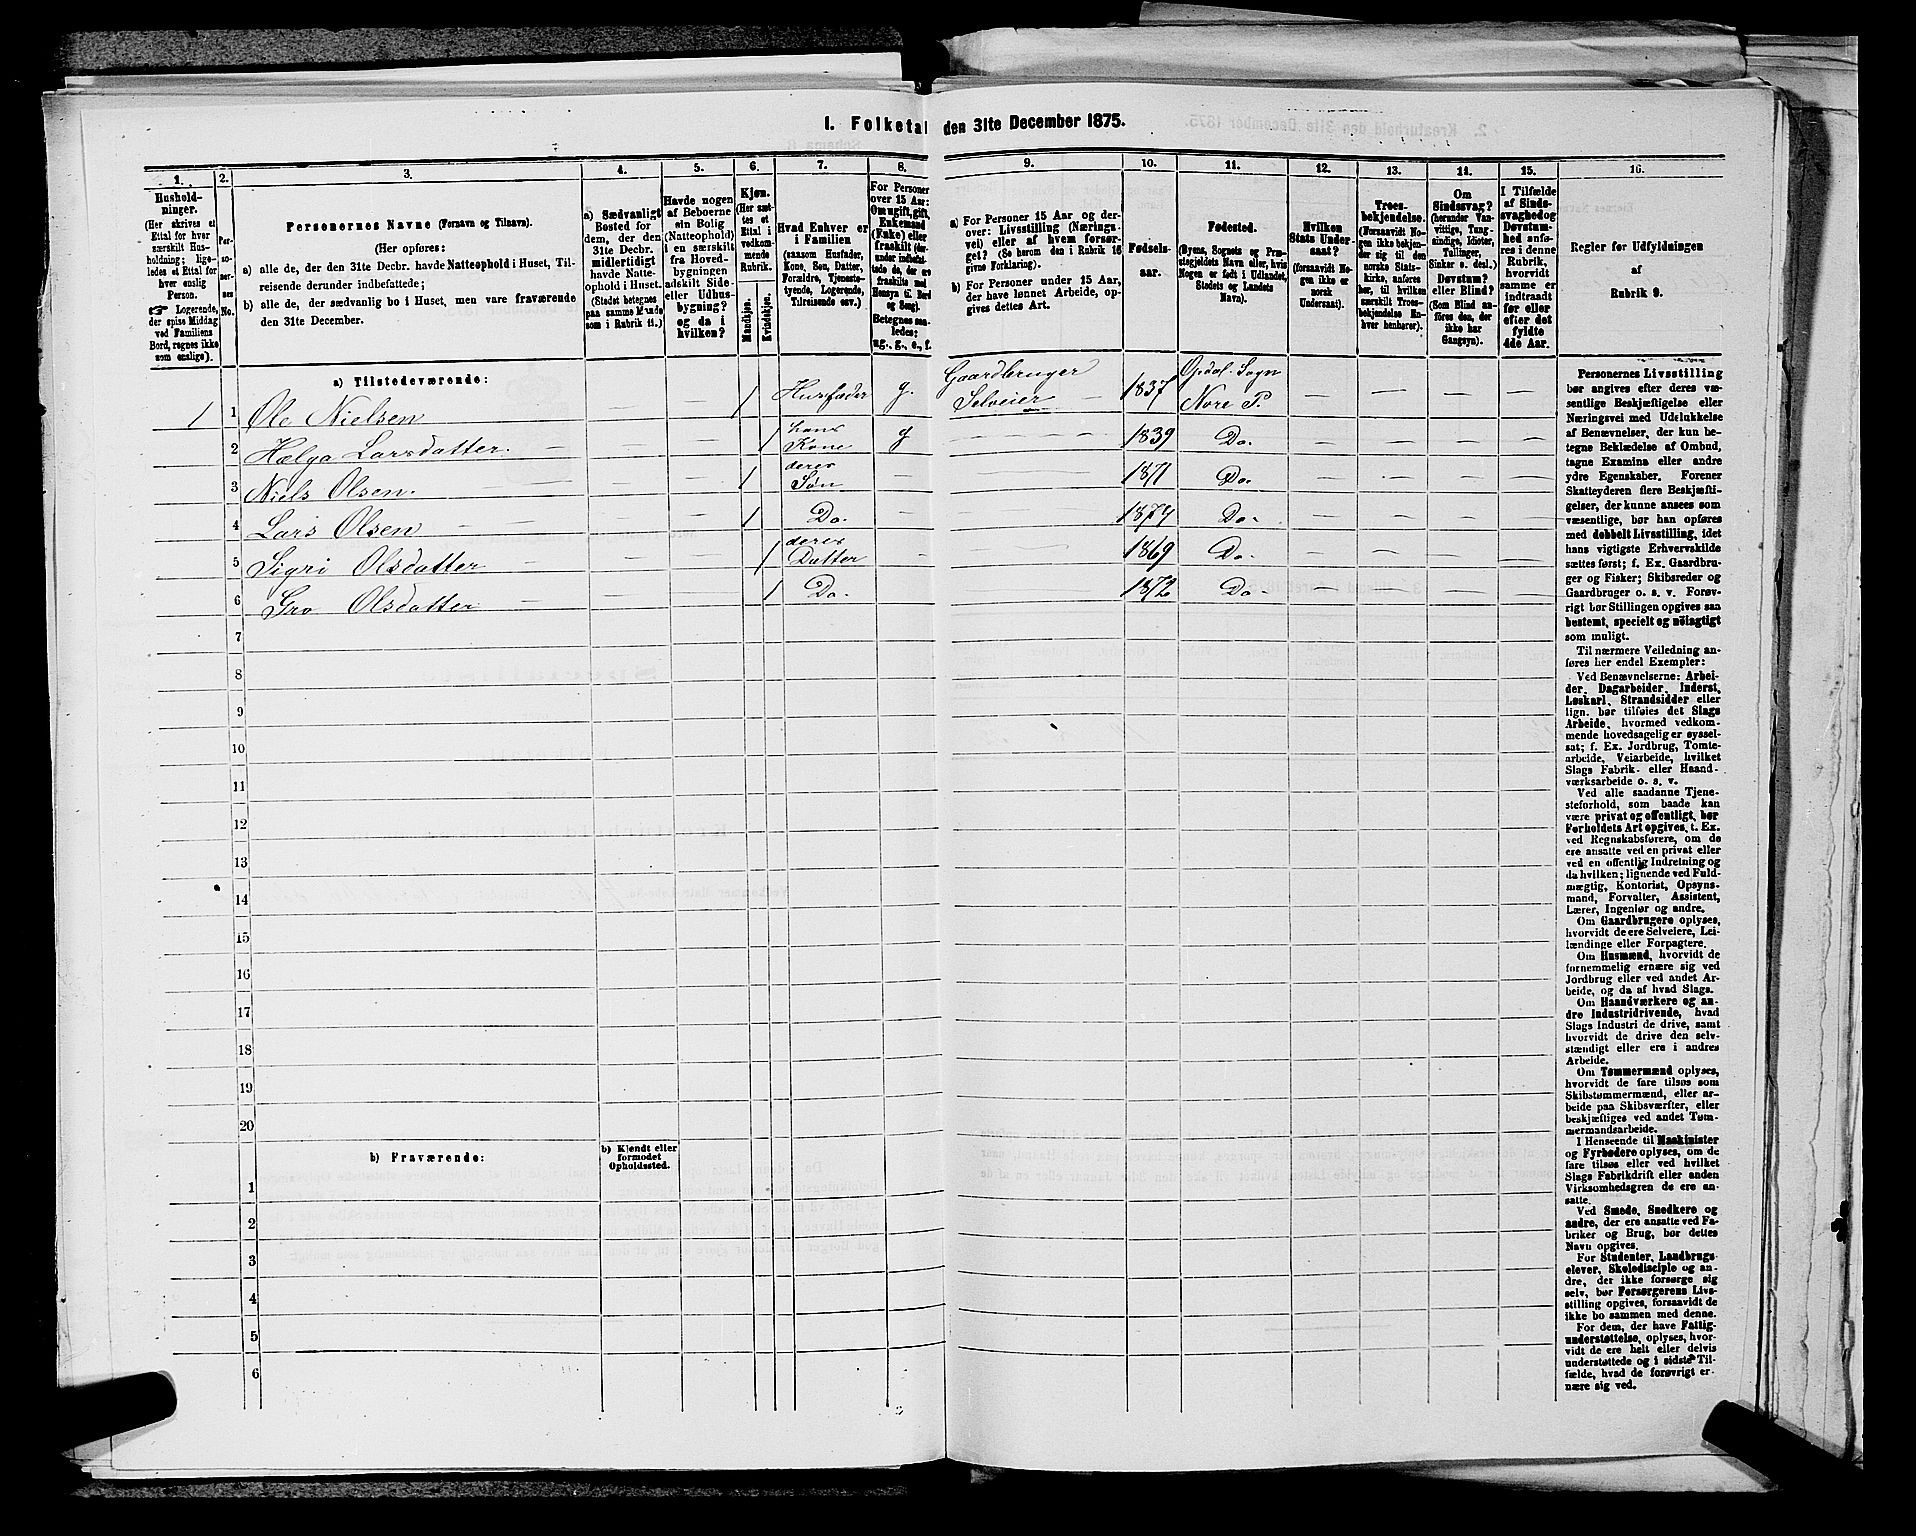 1. Folketal den 31te December 1875.
1.
2.
3.
4.
5.
6.
7.
8.
9.
10.
11.
12.
13.
14.
15.
16.
Husholdninger.
(Her skrives et
Ettal for hver
særskilt Husholdning;
ligeledes et Ettal for
hver enslig
Person.
Logerende,
der spise Middag
ved Familiens
Bord, regnes ikke
som enslige).
Personernes No.
Personernes Navne (Fornavn og Tilnavn).
(Her opføres:
a) alle de, der den 31te Decbr. havde Natteophold i Huset, Tilreisende derunder indbefattede;
b) alle de, der sædvanlig bo i Huset, men vare fraværende
den 31te December.
a) Sædvanligt
Bosted for
dem, der den
31te Decbr.
midlertidigt
havde Natteophold i Huset.
(Stedet betegnes
paa samme Maade
som i Rubrik 11.)
Havde nogen
af Beboerne
sin Bolig
(Natteophold)
i en særskilt
fra Hovedbygningen
adskilt Side-
eller Udhusbygning?
og da i
hvilken?
Kjøn.
(Her sættes et
Ettal i
vedkommende
Rubrik.
Mandkjøn.
Kvindekjøn.
Hvad Enhver er
i Familien
(saasom Husfader,
Kone, Søn, Datter,
Forældre, Tjenestetyende, Logerende,
Tilreisende osv.)
For Personer
over 15 Aar:
Om ugift, gift,
Enkemand
(Enke) eller
fraskilt
Betegnes saaledes:
ug., g., e., f.
a) For Personer 15 Aar og derover: Livsstilling (Næringsvei) eller af hvem forsørget? (Se herom den i Rubrik 16
givne Forklaring).
b) For Personer under 15 Aar,
der have lønnet Arbeide, opgives dettes Art.
Fødselsaar.
Fødested.
(Byens, Sognets og Præstegjeldets Navn eller, hvis
Nogen er født i Udlandet,
Stedets og Landets
Navn).
Hvilken
Stats Undersaat?
(forsaavidt Nogen ikke er
norsk
Undersaat).
Troesbekjendelse.
(Forsaavidt Nogen ikke bekjender sig til den
norske Statskirke, anføres
her, til hvilken
særskilt Troesbekjendelse Enhver henhører).
Om
Sindssvag?
(herunder Vanvittige, Tungsindige, Idioter,
Tullinger,
Sinker o. desl.)
Døvstum?
eller Blind?
(Som Blind anføres den, der
ikke har
Gangsyn).
I Tilfælde
af Sindssvaghed og
Døvstumhed anføres i denne
Rubrik,
hvorvidt
samme er
indtraadt
før eller
efter det
fyldte
4de Aar.
Regler for Udfyldningen
af
Rubrik 9.
a) Tilstedeværende:
1 1 Ole Nielsen — — 1 Husfader g. Gaardbruger Selveier — 1837 Opdal Sogn Nore P. — — — —
2 Helga Larsdatter. — — — 1 hans Kone g — — — 1839 Do. — — — —
3 Niels Olsen. — — — 1 deres Søn — — 1871 Do. — — — —
4 Lars Olsen — — — — 1 Do. — — 1874 Do. — — — —
5 Sigri Olsdatter — — — 1 deres Datter — — 1869 Do. — — — —
6 Gro Olsdatter — — — 1 Do. — — 1872 Do. — — — —
7
8
9
10
11
12
13
14
15
16
17
18
19
20
b) Fraværende:
b) Kjendt eller
formodet
Opholdssted.
1
2
3
4
5
6
Personernes Livsstilling
bør angives efter deres væsentlige Beskjæftigelse eller
Næringsvei med Udelukkelse
af Benævnelser, der kun betegne Beklædelse af Ombud,
tagne Examina eller andre
ydre Egenskaber. Forener
Skatteyderen flere Beskjæftigelser, der kunne ansees som
væsentlige, bør han opføres
med dobbelt Livsstilling, idet
hans vigtigste Erhvervskilde
sættes først; f. Ex. Gaardbruger og Fisker; Skibsreder og
Gaardbruger o. s. v. Forøvrigt bør Stillingen opgives saa
bestemt, specielt og nøiagtigt
som muligt.
Til nærmere Veiledning anføres her endel Exempler:
Ved Benævnelserne: Arbeider, Dagarbeider, Inderst,
Løskarl, Strandsidder eller
lign. bør tilføies det Slags
Arbeide, hvormed vedkommende hovedsagelig er sysselsat; f. Ex. Jordbrug, Tomtearbeide, Veiarbeide, hvilket
Slags Fabrik- eller Haandværksarbeide o. s. v.
Ved alle saadanne Tjenesteforhold, som baade kan
være privat og offentligt, bør
Forholdets Art opgives, t. Ex.
ved Regnskabsførere, om de
ere ansatte ved en privat eller
ved en offentlig Indretning og
da hvilken; lignende ved Fuldmægtig, Kontorist, Opsynsmand, Forvalter, Assistent,
Lærer, Ingeniør og andre.
Om Gaardbrugere oplyses,
hvorvidt de ere Selveiere, Leilændinge eller Forpagtere.
Om Husmænd, hvorvidt de
fornemmelig ernære sig ved
Jordbrug eller ved andet Arbeide, og da af hvad Slags.
Om Haandværkere og andre Industridrivende, hvad
Slags Industri de drive, samt
hvorvidt de drive den selvstændigt eller ere i andres
Arbeide.
Om Tømmermænd oplyses,
hvorvidt de fare tilsøs som
Skibstømmermænd, eller arbeide paa Skibsværfter, eller
beskjæftiges ved andet Tømmermandsarbeide.
I Henseende til Maskinister
og Fyrbødere oplyses, om de
fare tilsøs eller ved hvilket
Slags Fabrikdrift eller anden
Virksomhedsgren de ere ansatte.
Ved Smede, Snedkere og
andre, der ere ansatte ved Fabriker og Brug, bør dettes
Navn opgives.
For Studenter, Landbrugselever, Skoledisciple og andre, der ikke forsørge sig
selv, bør Forsørgerens Livsstilling opgives, forsaavidt de
ikke bo sammen med denne.
For dem, der have Fattigunderstøttelse, oplyses, hvorvidt de ere helt eller delvis
understøttede og i sidste Tilfælde, hvad de forøvrigt ernære sig ved.